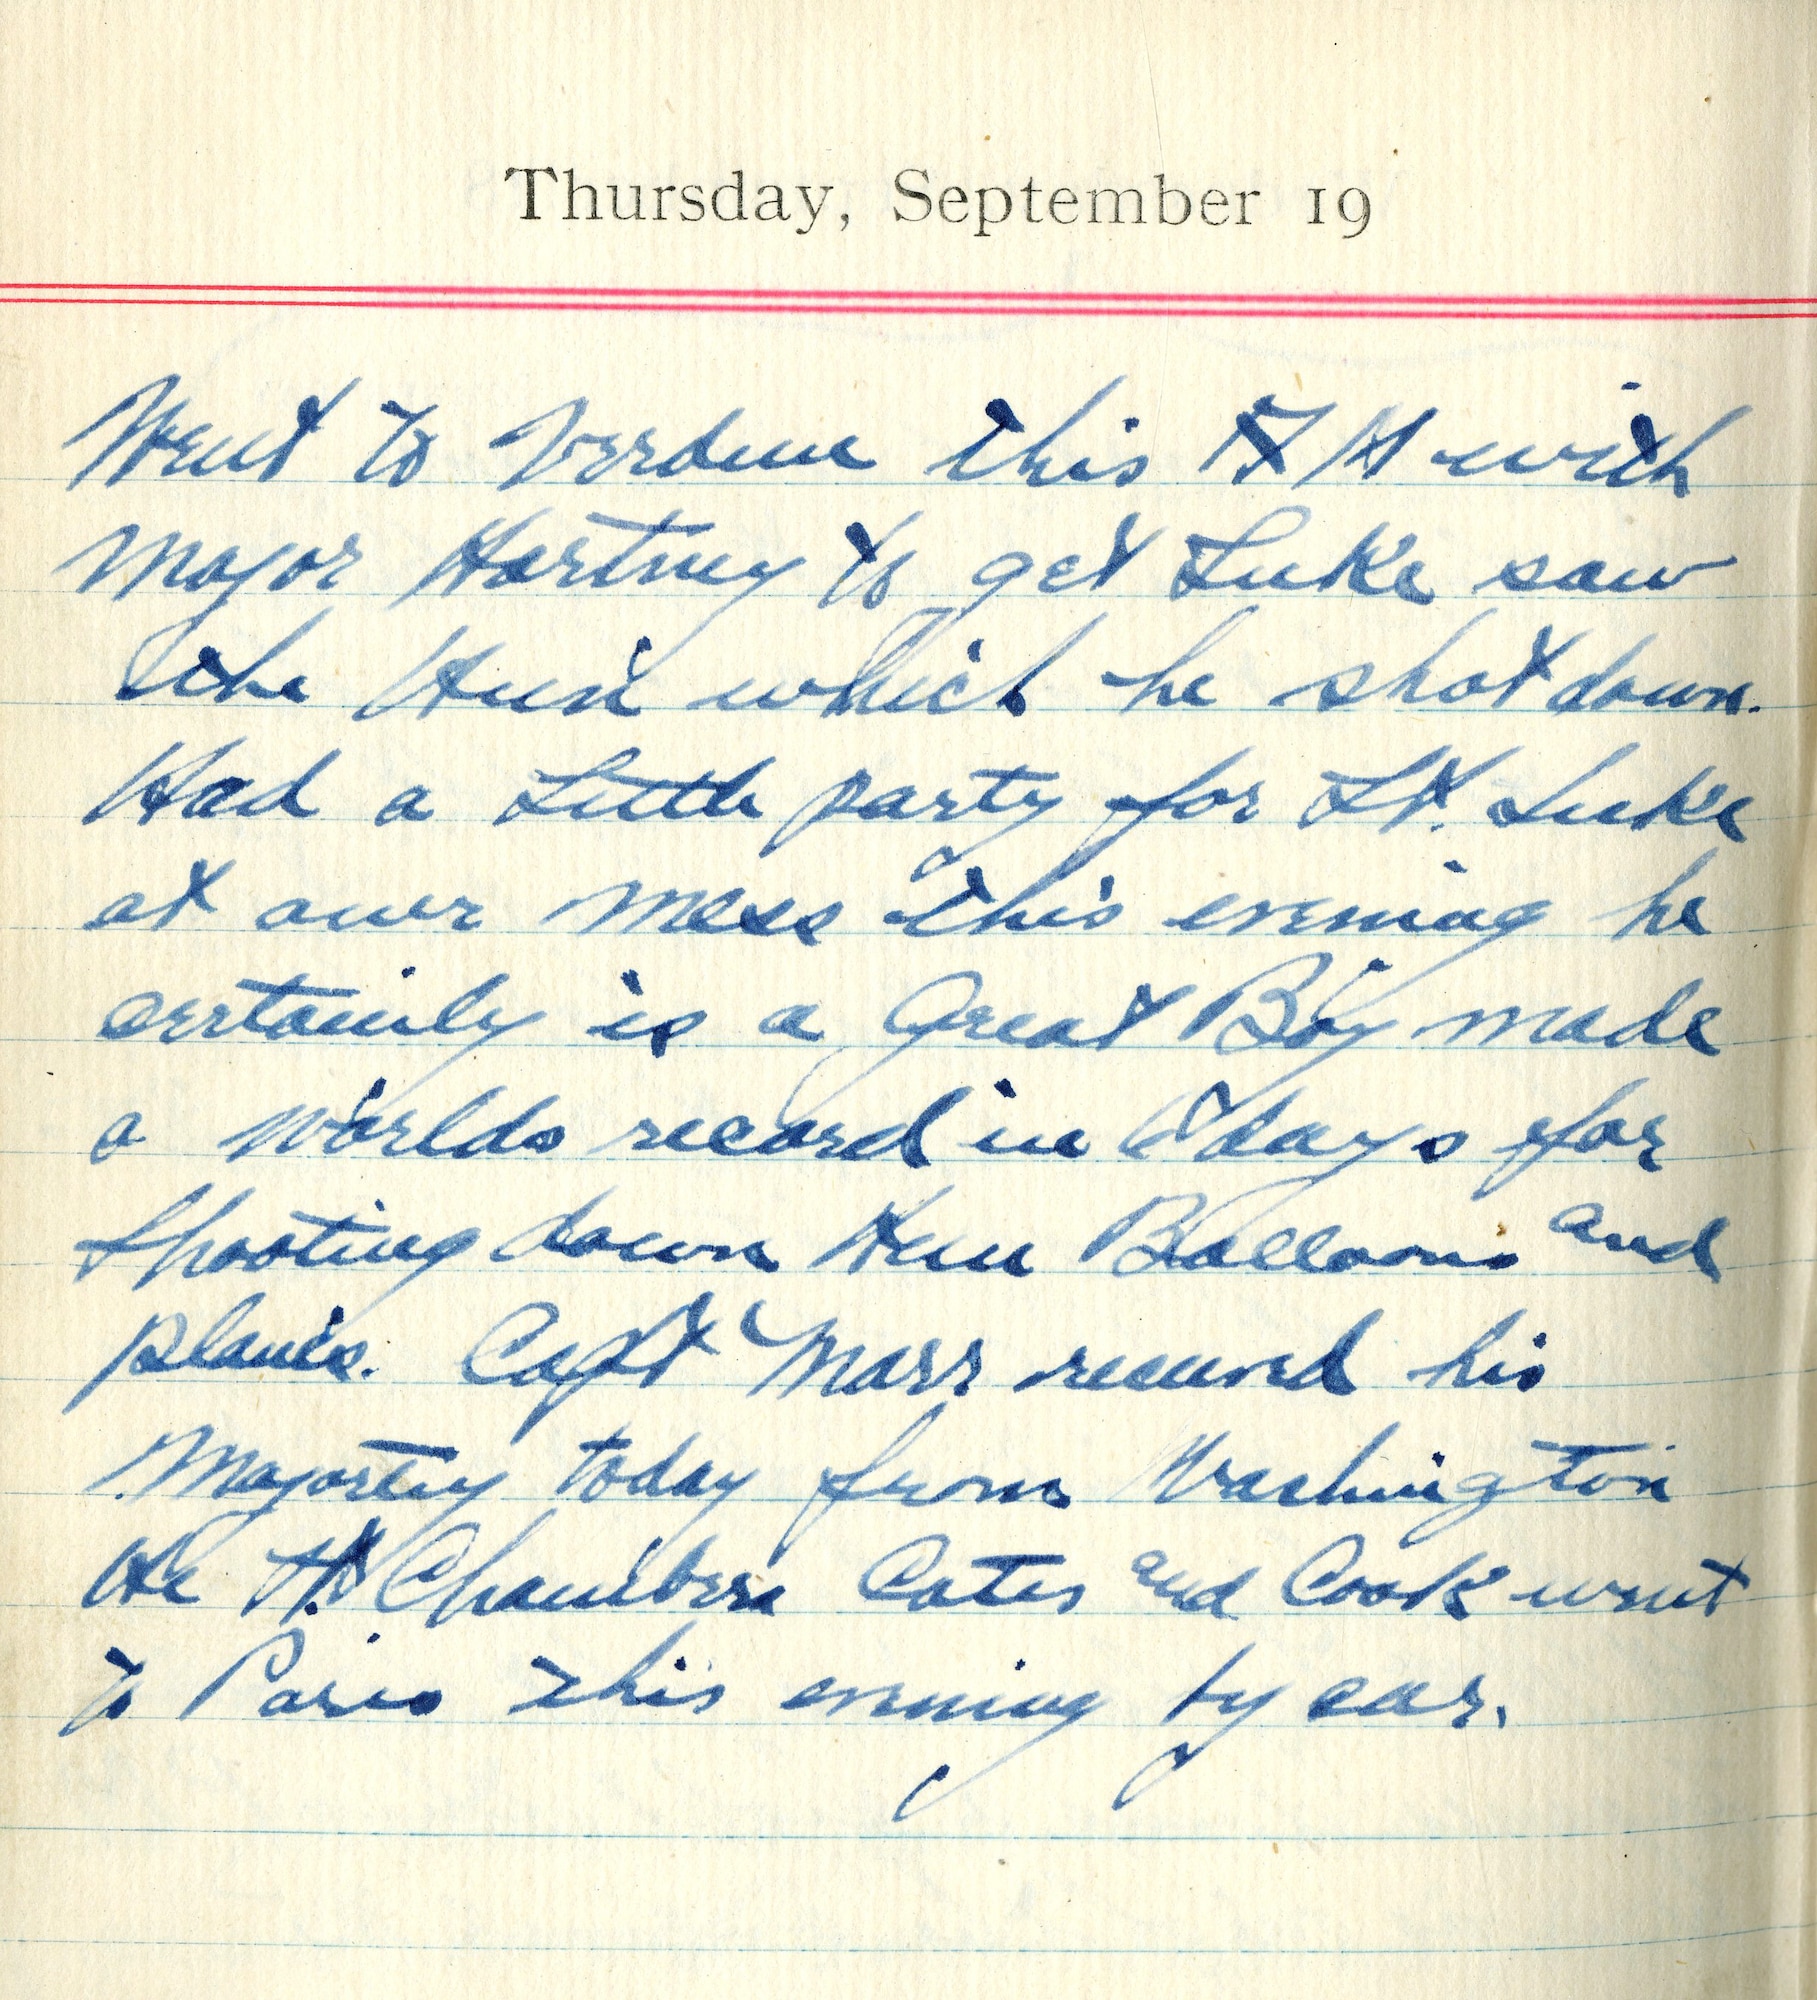 Thursday, September 19
Went to Verdun this A M with
Major Hartney to get Luke saw
the Hun which he shot down.
Had a Little party for Lt. Luke
at ower mess this evening he
certainly is a Great Boy made
a worlds record in 6 days for
Shooting down Hun Balloons and
planes. Capt Marr received his
Majority today from Washington
He Lt. Chambers Coates and Cook went
to Paris this evening by car.